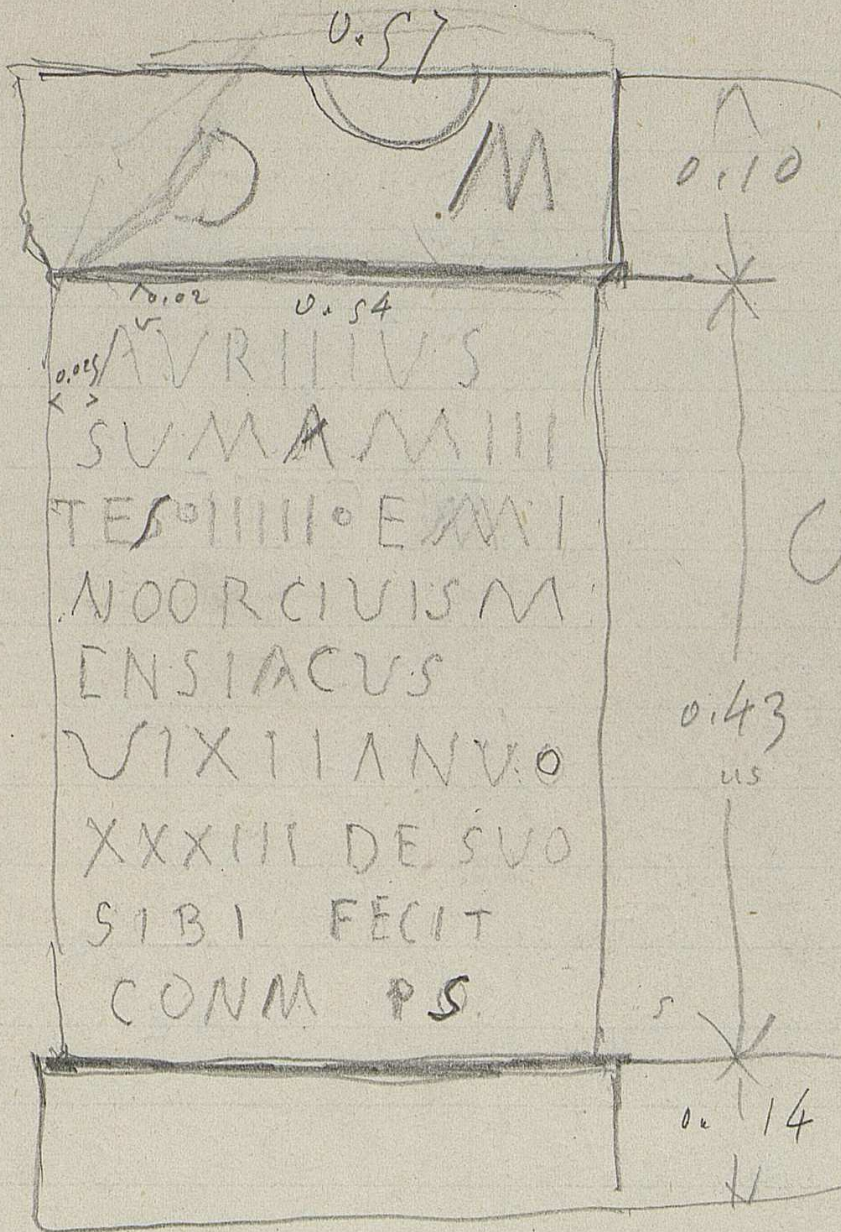 0.57
D M
0.10
0.02
0.54
0.025
AVRIIIVS
SUMAMIII
TES•IIIII•EMMI
NOORCIVISM
ENSIACUS
VIXIIANVO
XXXIII DE SUO
SIBI FECIT
CONM PS
0.43
us
s
0.14